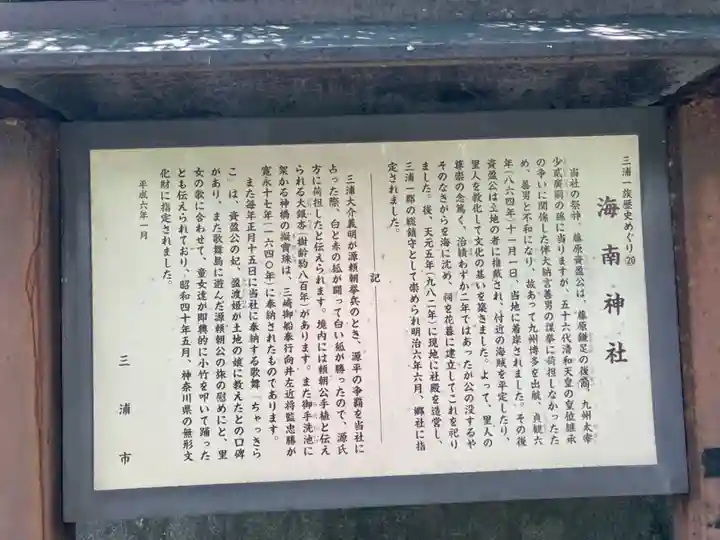 三浦一族歴史めぐり⑳
海南神社
当社の祭神、藤原資盈公は、藤原鎌足の後裔、九州太宰
少貳廣嗣の孫に当りますが、五十六代清和天皇の皇位継承
の争いに関係した伴大納言善男の謀挙に荷担しなかったた
め、善男と不和になり、故あって九州博多を出航、貞観六
年(八六四年)十一月一日、当地に着岸されました。その後
資盈公は立地の者に推戴され、付近の海賊を平定したり、
里人を教化して文化の基いを築きました。よって、里人の
尊崇の念篤く、治績わずか二年ではあったが公の没するや
そのなきがらを海に沈め、祠を花暮に建立してこれを祀り
ました。後、天元五年(九八二年)に現地に社殿を造営し、
三浦一郡の総鎮守として崇められ明治六年六月、郷社に指
定されました。
記
三浦大介義明が源頼朝挙兵のとき、源平の争覇を当社に
占った際、白と赤の狐が闘って白い狐が勝ったので、源氏
方に荷担したと伝えられます。境内には頼朝公手植と伝え
られる大銀杏(樹齢約八百年)があります。また御手洗池に
架かる神橋の擬宝珠は、三崎御船奉行向井左近将監忠勝が
寛永十七年(一六四〇年)に奉納されたものであります。
また毎年正月十五日に当社に奉納する歌舞「ちゃっきら
こ」は、資盈公の妃、盈渡姫が土地の娘に教えたとの口碑
があり、また歌舞島に遊んだ源頼朝公の旅の慰めにと、里
女の歌に合わせて、童女達が即興的に小竹を叩いて踊った
とも伝えられており、昭和四十年五月、神奈川県の無形文
化財に指定されました。
平成六年一月
三浦市